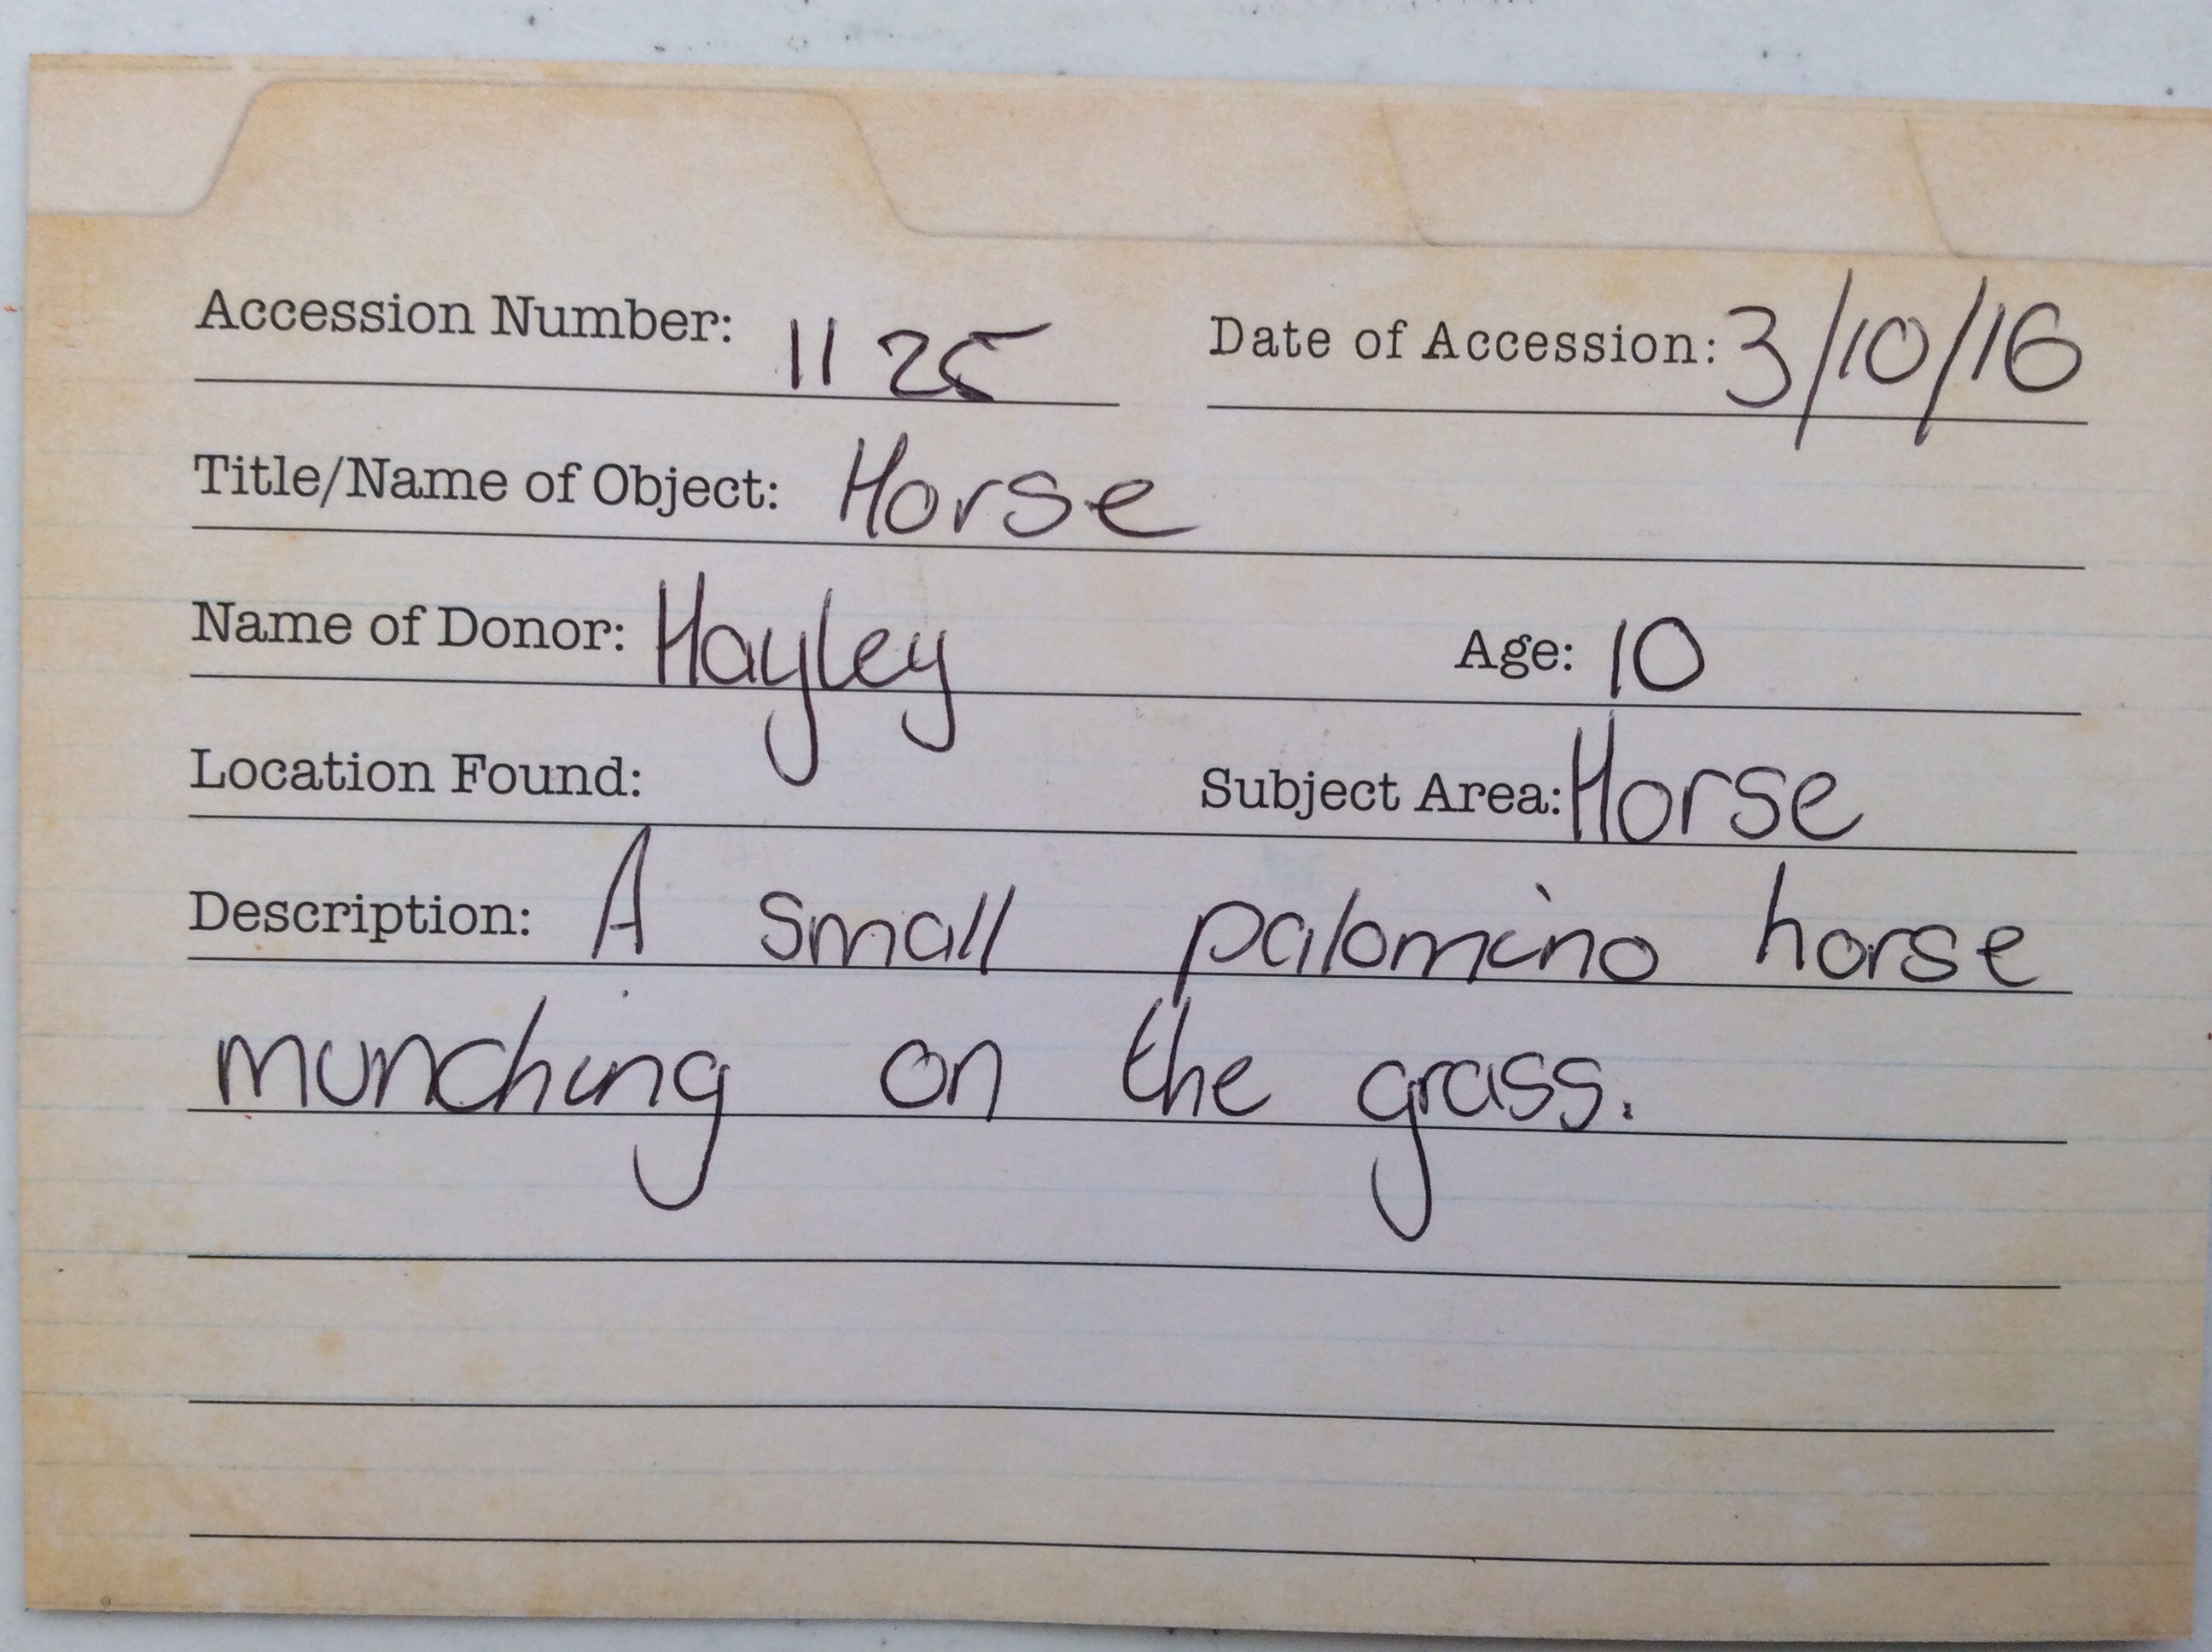 Accession Number: 1125 Date of Accession: 3/10/16
Title/Name of Object: Horse
Name of Donor: Hayley Age: 10
Location Found: Subject Area: Horse
Description: A small palomino horse
munching on the grass.